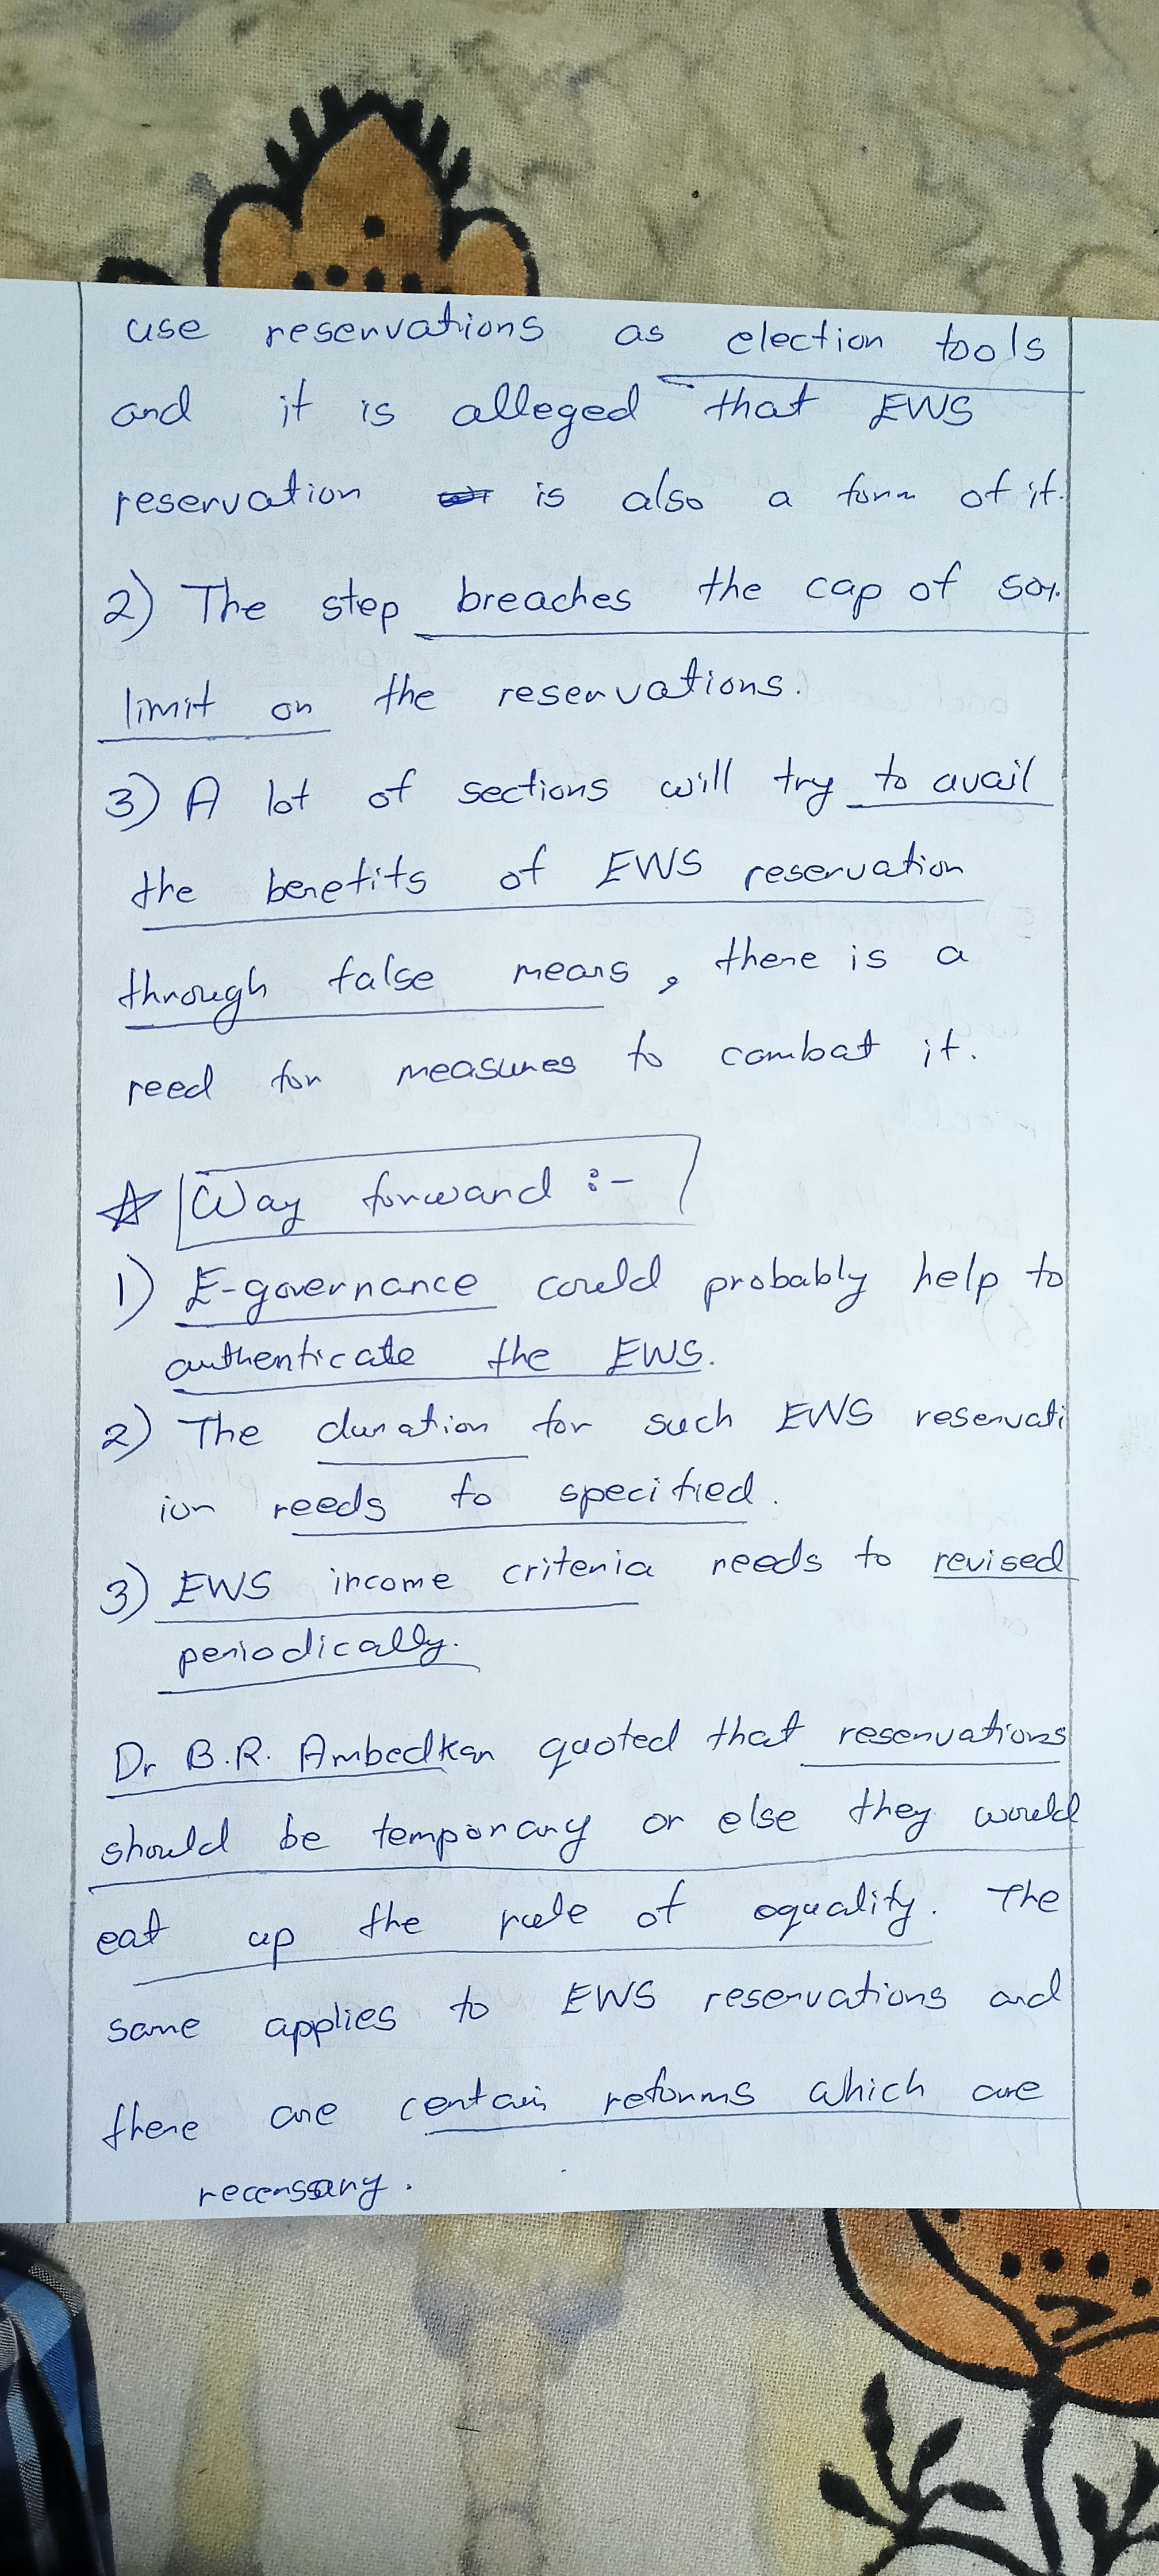 use reservations as election tools
and it is alleged that EWS
reservation is also a form of it.
2) The step breaches the cap of 50%
limit on the reservations.
3) A lot of sections will try to avail
the benefits of EWS reservation
through false means, there is a
need for measures to combat it.
☆ Way forward :-
1) E-governance could probably help to
authenticate the EWS.
2) The duration for such EWS reservati
ion needs to specified.
3) EWS income criteria needs to revised
periodically.
Dr B.R. Ambedkar quoted that reservations
should be temporary or else they would
eat up the rule of equality. The
same applies to EWS reservations and
there are certain reforms which are
necessary.